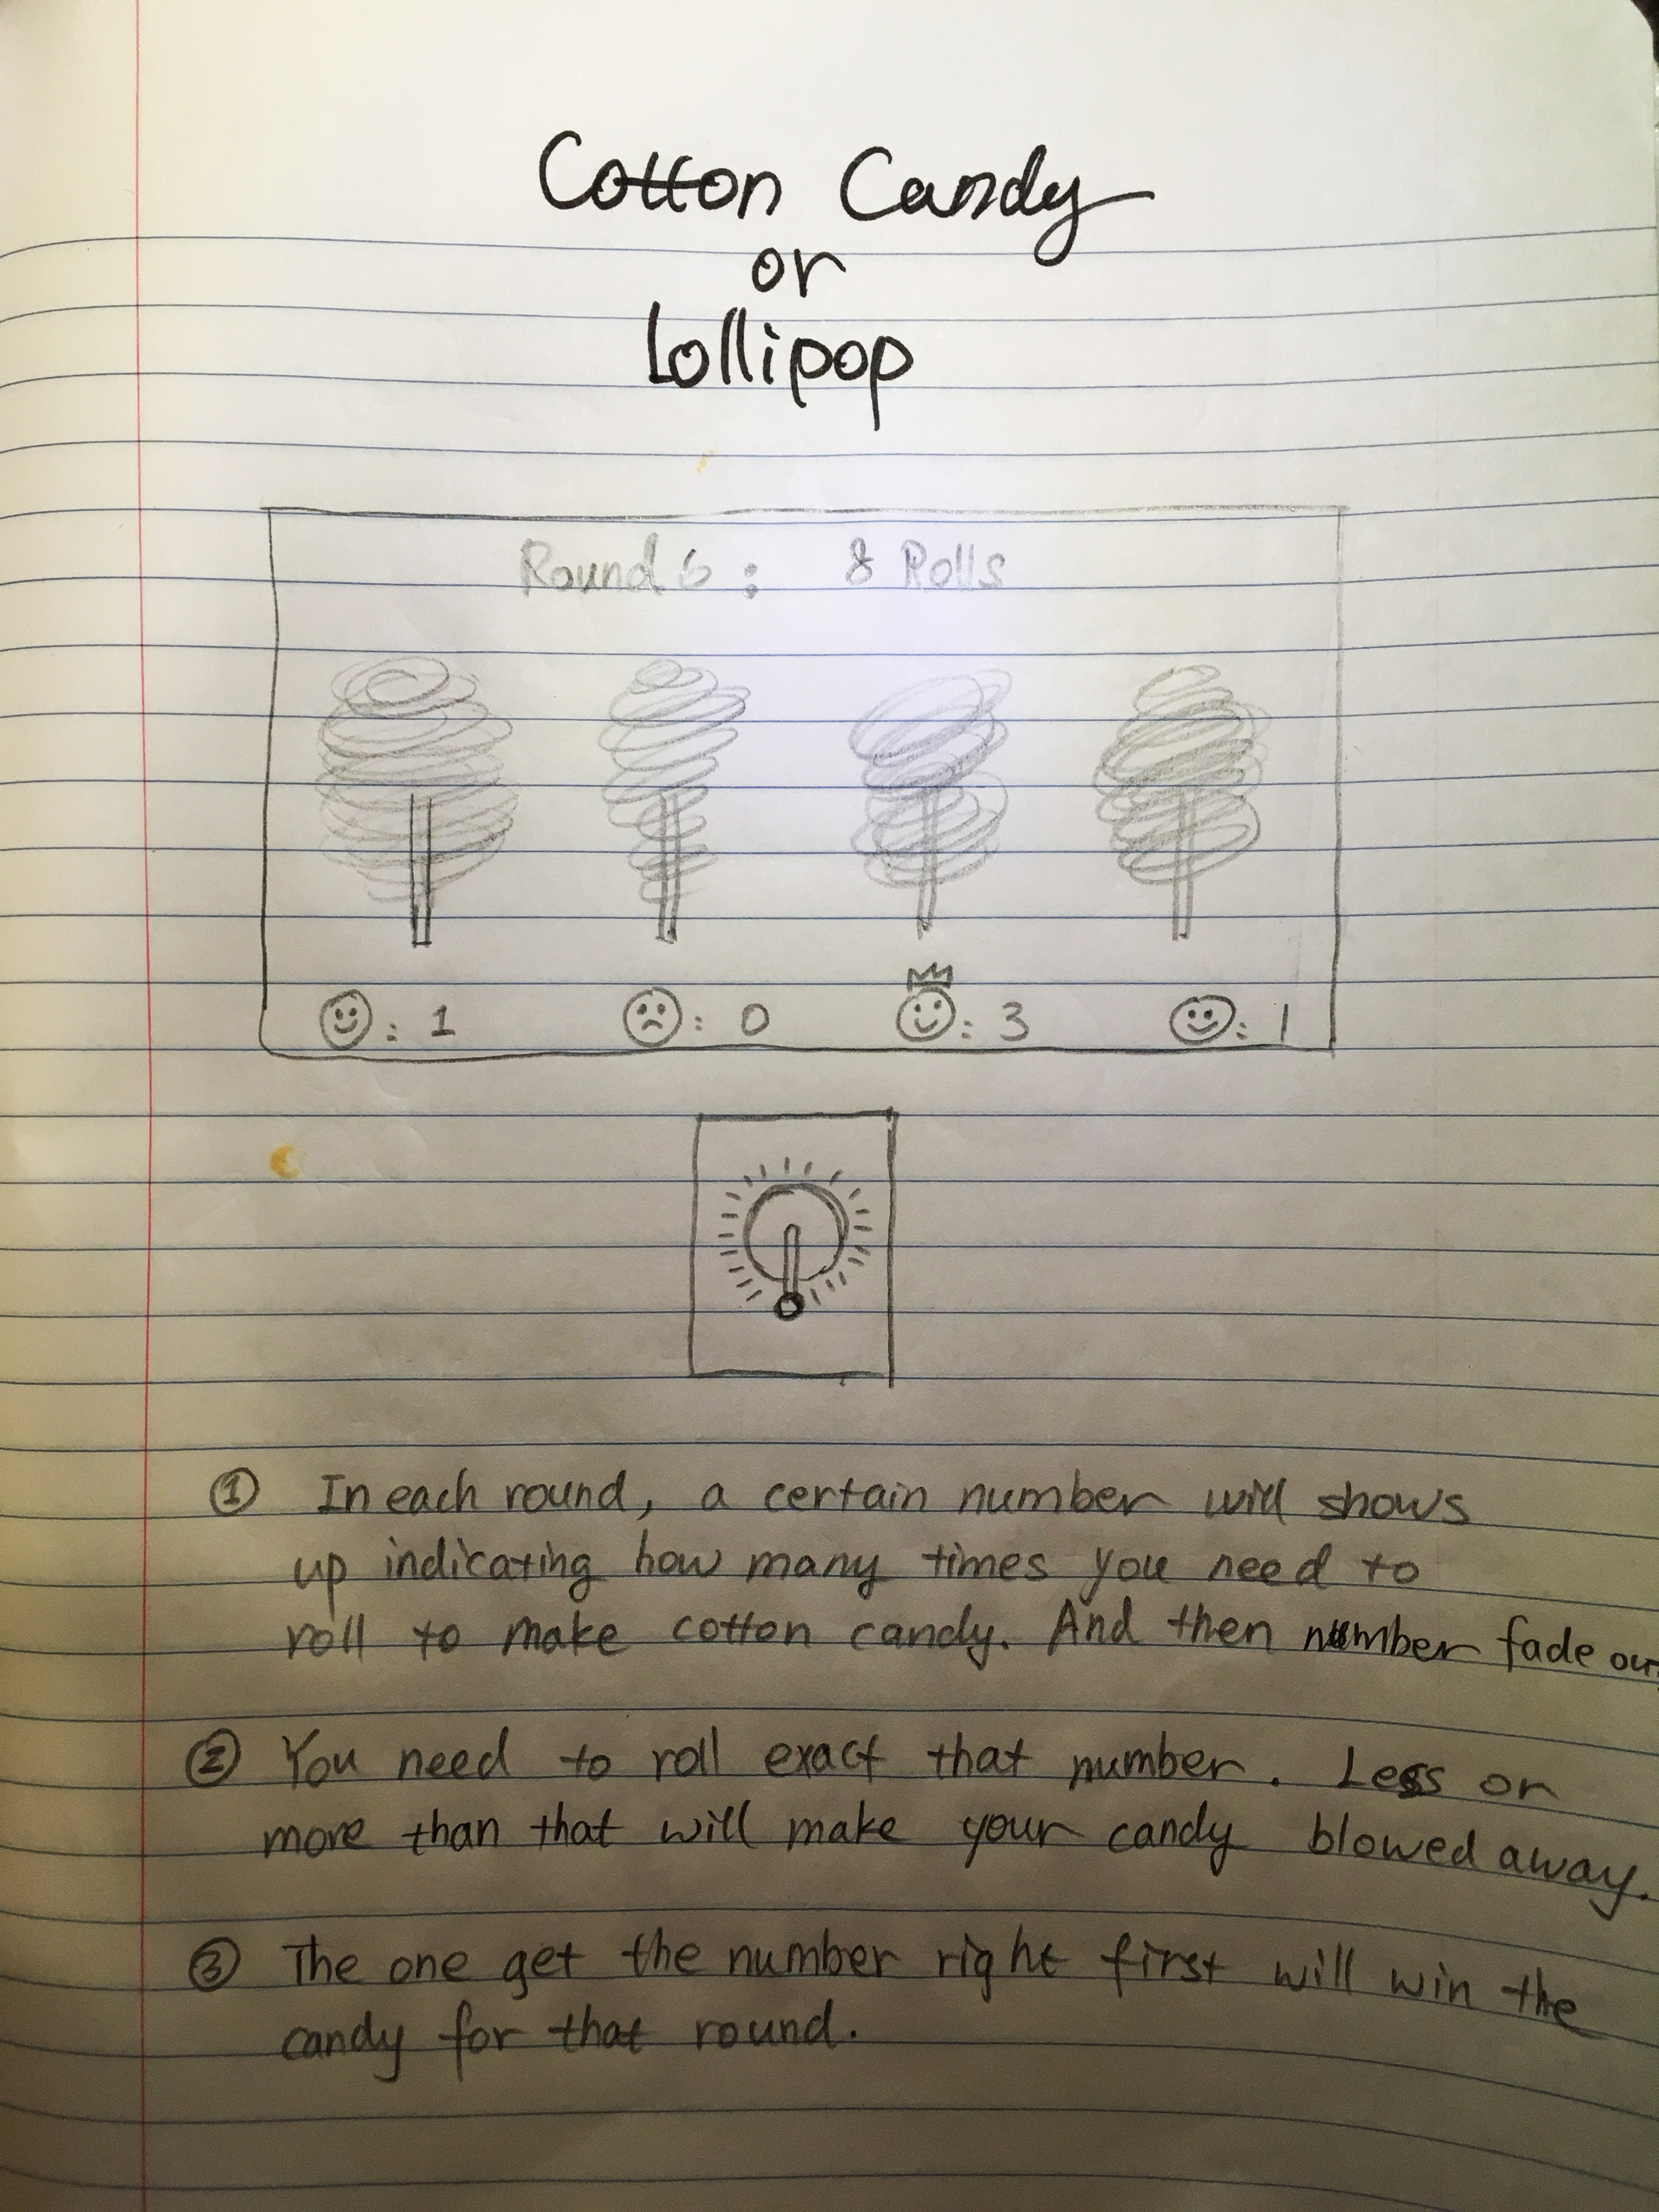 Cotton Candy
or
Lollipop
Round 6 : 8 Rolls
: 1 : 0 : 3 : 1
① In each round, a certain number will shows
up indicating how many times you need to
roll to make cotton candy. And then number fade out
② You need to roll exact that number. Less or
more than that will make your candy blowed away.
③ The one get the number right first will win the
candy for that round.